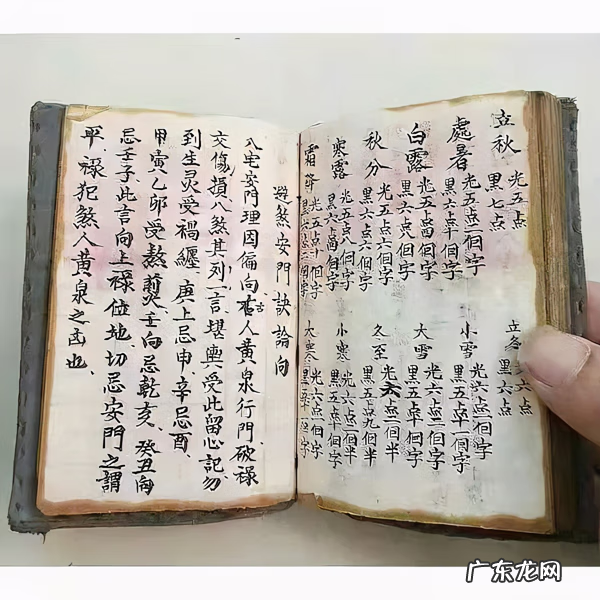 立秋 光五点 黑七点
處暑 光五点二個字 黑六点十個字
白露 光五点四個字 黑六点八個字
秋分 光五点六個字 黑六点六個字
寒露 光五点八個字 黑六点四個字
霜降 光五点十個字
立冬 六点 黑六点
小雪 光六点二個字 黑五点十個字
大雪 光六点二個字 黑五点十個字
冬至 光六点二個半 黑五点九個半
小寒 光六点二個半 黑五点九個半
大寒 光六点二個字
避煞安門訣論向
八宅安門理因偏向古人黃泉行門破祿
交傷損八煞其列一言堪輿受此留心記勿
到生灵受禍纏庚上忌申辛忌酉
甲寅乙卯受熬煎壬向忌乾亥癸丑向
忌壬子此言向上祿位地切忌安門之謂
平祿犯煞人黃泉之凶也
广东龙网